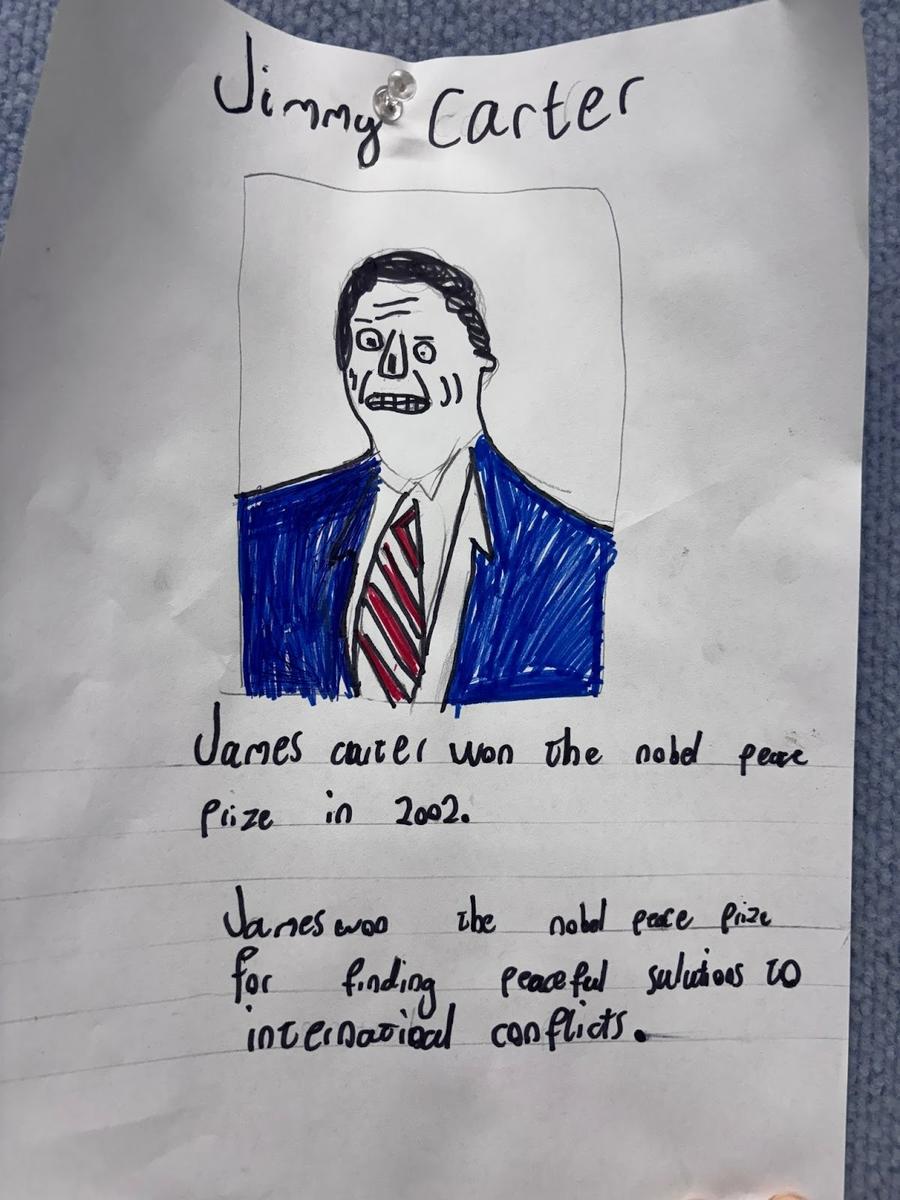 Jimmy Carter
James carter won the nobel peace
prize in 2002.
James won the nobel peace prize
for finding peaceful solutions to
international conflicts.